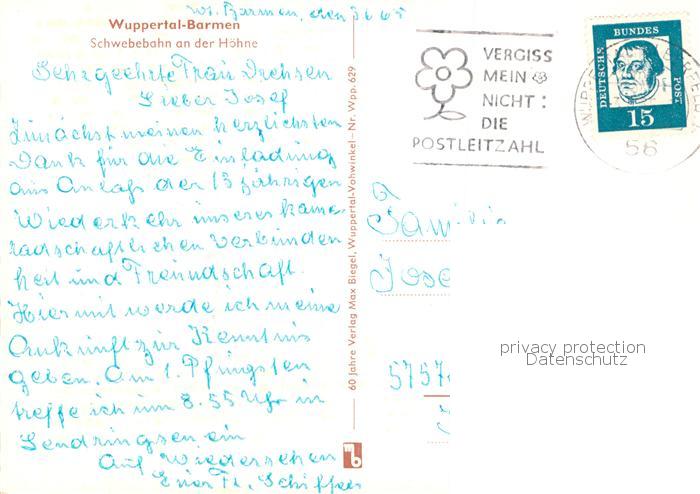 Wuppertal-Barmen
Schwebebahn an der Höhne
Barmen, den
Sehr geehrte Frau
Lieber Josef
Zunächst meinen herzlichsten
Dank für die Einladung
aus Anlaß der 13 jährigen
Wiederkehr unseres kame-
radschaftlichen Verbunden
heit und Freundschaft.
Hiermit werde ich meine
Ankunft zur Kenntnis
geben. Am 1. Pfingsten
treffe ich um 8.55 Uhr in
Sendringsen ein
Auf Wiedersehen
Euer
60 Jahre Verlag Max Biegel, Wuppertal-Vohwinkel – Nr. Wpp. 629
VERGISS
MEIN
NICHT:
DIE
POSTLEITZAHL
DEUTSCHE BUNDESPOST
15
56
Familie
Jose
5757
privacy protection
Datenschutz